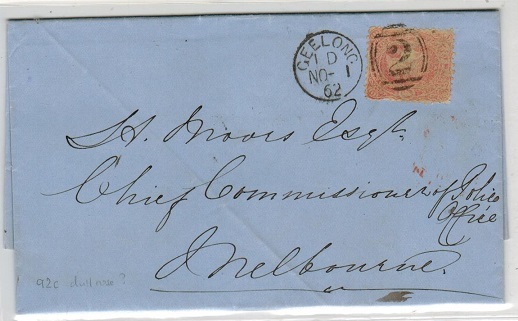 GEELONG
1 D
NO- 1
62
2
H. Moors Esqr
Chief Commissioner of Police
Office
Melbourne.
92c dull rose ?